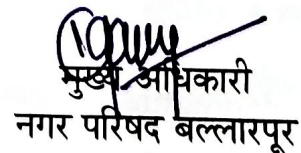 मुख्य अधिकारी
नगर परिषद बल्लारपूर